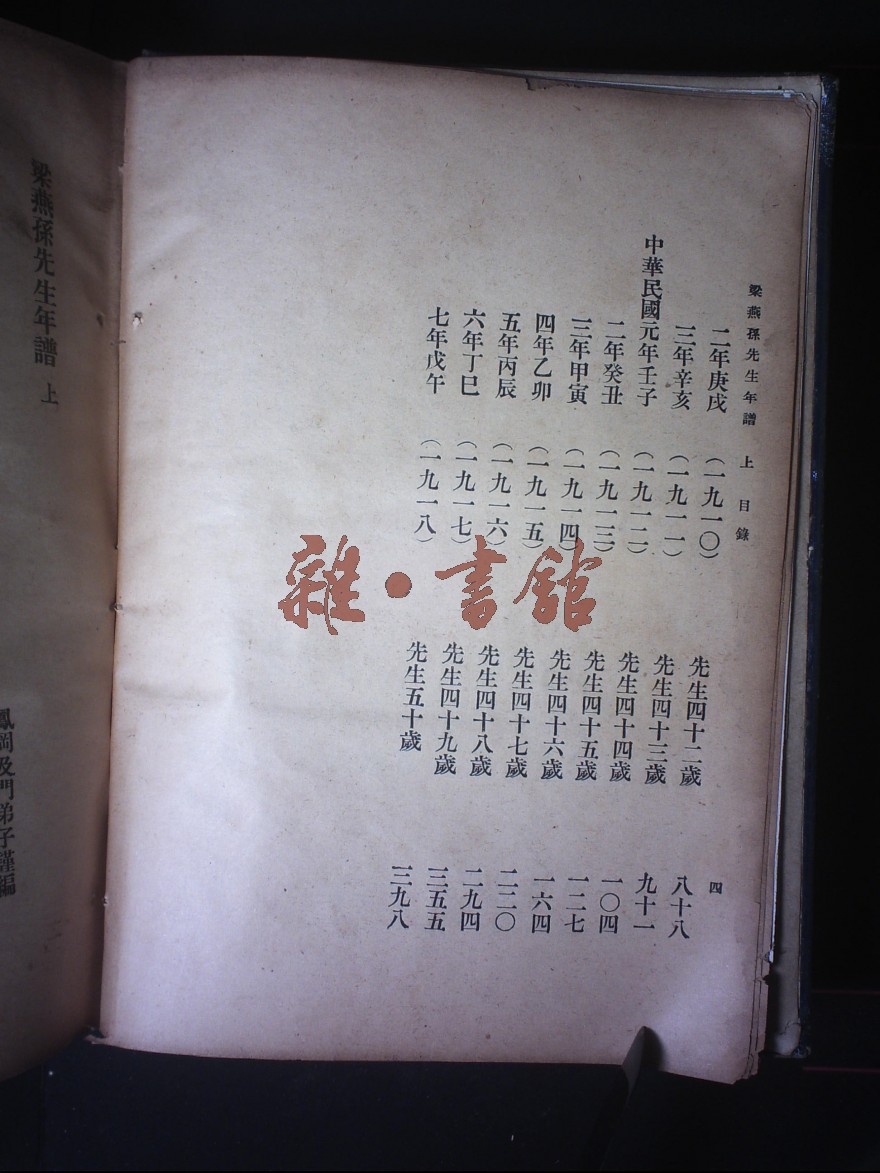 梁燕孫先生年譜 上 目錄 四
二年庚戌 (一九一〇) 先生四十二歲 八十八
三年辛亥 (一九一一) 先生四十三歲 九十一
中華民國元年壬子 (一九一二) 先生四十四歲 一〇四
二年癸丑 (一九一三) 先生四十五歲 一二七
三年甲寅 (一九一四) 先生四十六歲 一六四
四年乙卯 (一九一五) 先生四十七歲 二二〇
五年丙辰 (一九一六) 先生四十八歲 二九四
六年丁巳 (一九一七) 先生四十九歲 三五五
七年戊午 (一九一八) 先生五十歲 三九八
雜·書館
梁燕孫先生年譜 上
鳳岡及門弟子謹編